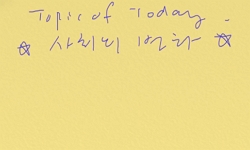 Topic of Today.
☆ 사회의 변화 ☆